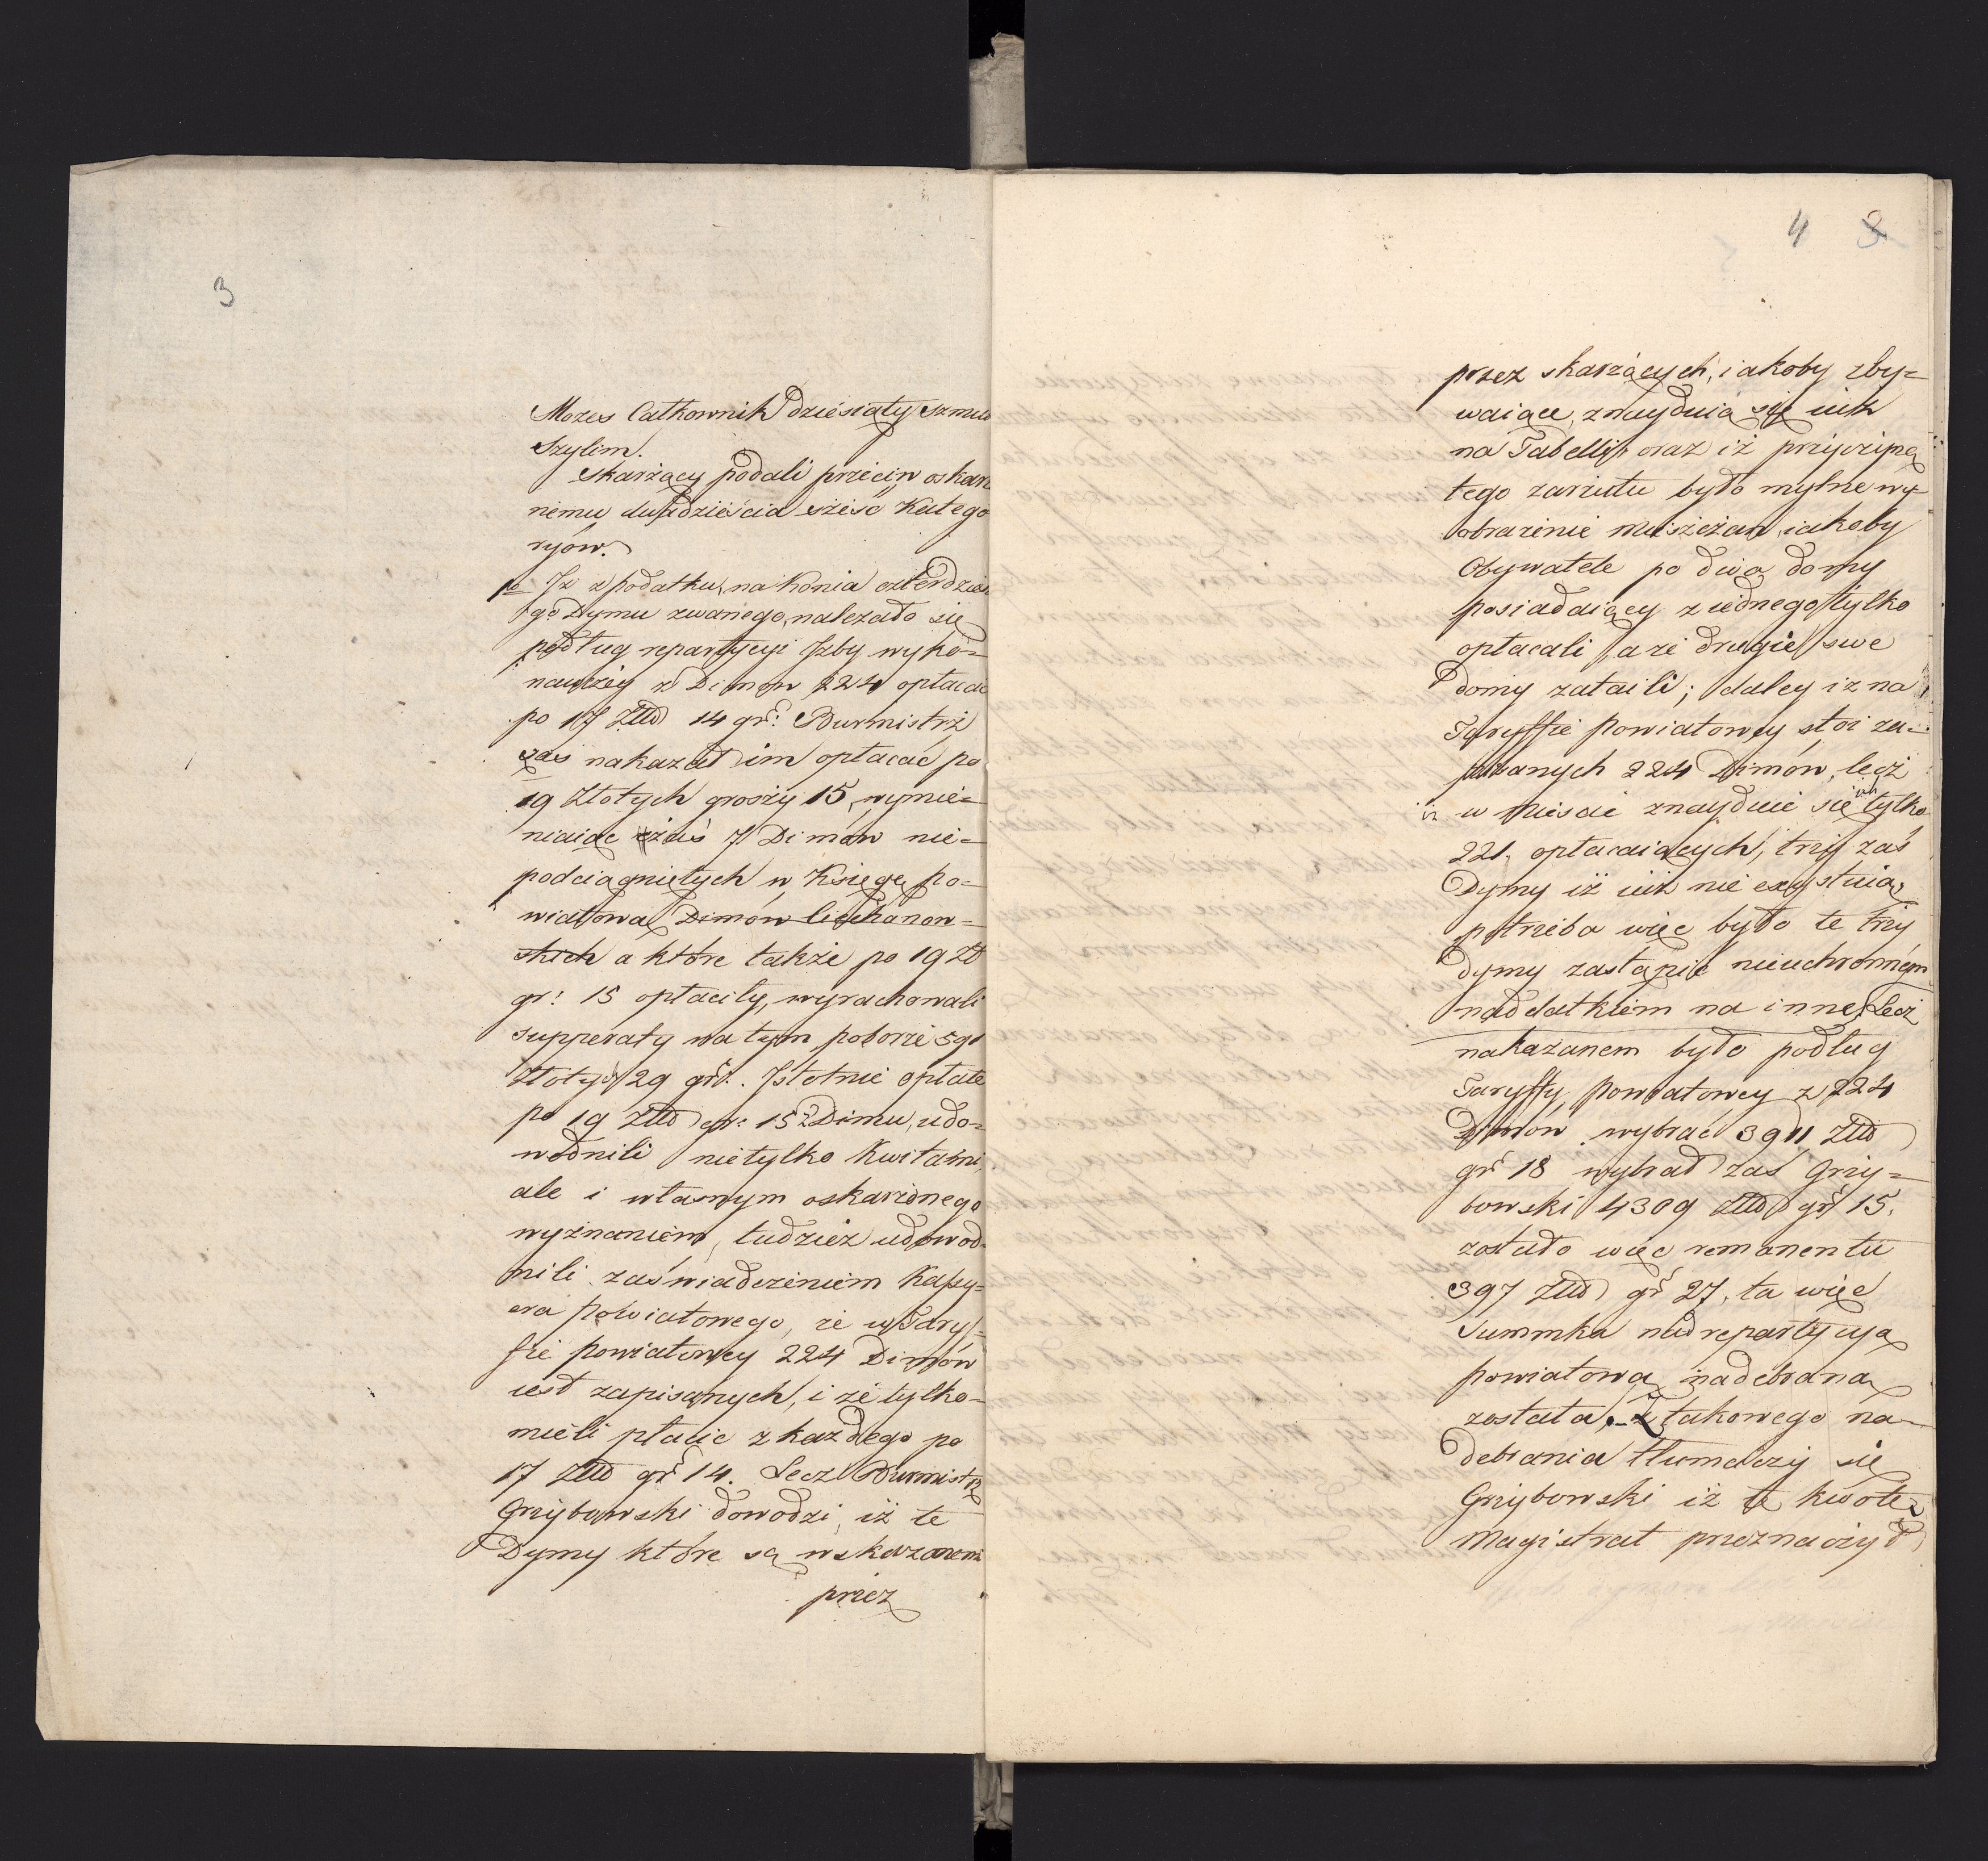 3
Mozes Całkownik dziesiąty Szmul
Szylim.
Skarżący podali przeciw oskarż
nemu dwadzieścia sześć Katego
ryów.
1o Iż z podatku na konia czterdzies
go Dymu zwanego, należało się
podług repartycyi Izby wyko=
nawczey z Dimów 224 opłacać
po 17 Złłd 14 gr: Burmistrz
zaś nakazał im opłacać po
19 Złotych groszy 15, wymie=
niaiąc zaś 7 Dimów nie=
podciągniętych w Księgę po=
wiatową Dimów Ciechanow=
skich a które także po 19 Zł
gr: 15 opłaciły, wyrachowali
supperaty na tym poborze 591
Złotych 29 gr:. Istotnie opłate
po 19 Złłd gr: 15 z Dimu, udo=
wodnili nietylko Kwitami,
ale i własnym oskarżonego
wyznaniem, tudzież udowod=
nili zaświadczeniem Kassy=
era powiatowego, że w Tary=
fie powiatowey 224 Dimów
iest zapisanych, i że tylko
mieli płacić z każdego po
17 Złłd gr 14. Lecz Burmistrz
Grzybowski dowodzi, iż te
Dymy które są wskazanemi
przez
4 3
przez skarżących, iakoby zby=
waiące, znayduią się iuż
na Tabelli, oraz iż przyczyną
tego zarzutu było mylne wy=
obrażenie Mieszczan, iakoby
Obywatele po dwa domy
posiadaiący z iednego tylko
opłacali, a że drugie swe
domy zataili; daley iż na
Taryffie powiatowey stoi za=
pisanych 224 Dimów, lecz
iż w Mieście znayduie się ich tylko
221. opłacaiących, trzy zaś
Dymy iż iuż nie exystuią,
potrzeba więc było te trzy
dymy zastąpić nieuchronnym
naddatkiem na inne. Lecz
nakazanem było podług
Taryffy powiatowey z 224
Dimów wybrać 3911 Złłd
gr 18 wybrał zaś Grzy=
bowski 4309 Złłd gr 15.
zostało więc remanentu
397 Złłd gr 27, ta więc
Summka nad repartycyą
powiatową nadebraną
została. – Z takowego na=
debrania tłumaczy się
Grzybowski iż tę kwotę
Magistrat przeznaczył